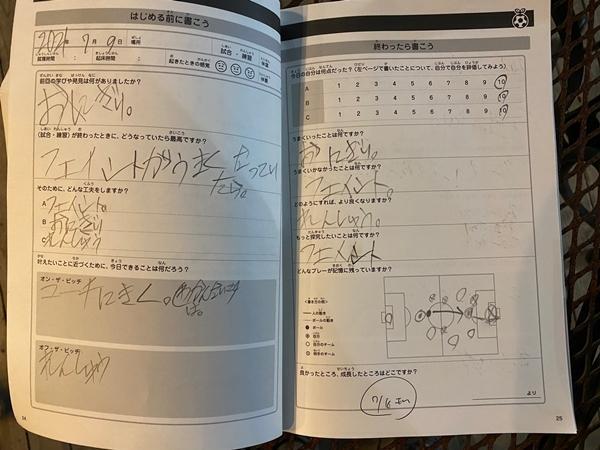 はじめる前に書こう
2021年 7月 9日 場所
就寝時間 : 起床時間 : 起きたときの感覚 試合・練習 体重
前回の学びや発見は何がありましたか?
おにぎり。
(試合・練習)が終わったときに、どうなっていたら最高ですか?
フェイントがうまくなってい
たら。
そのために、どんな工夫をしますか?
A フェイント。
B おにぎり
C れんしゅう
叶えたいことに近づくために、今日できることは何だろう?
オン・ザ・ピッチ
コーチにきく。
オフ・ザ・ピッチ
れんしゅう
24
終わったら書こう
今日の自分は何点だった?(左ページで書いたことについて、自分で自分を評価してみよう)
A 1 2 3 4 5 6 7 8 9 10
B 1 2 3 4 5 6 7 8 9 10
C 1 2 3 4 5 6 7 8 9 10
うまくいったことは何ですか?
おにぎり。
うまくいかなかったことは何ですか?
フェイント。
どのようにすれば、より良くなりますか?
れんしゅう。
もっと探究したいことは何ですか?
フェイント
どんなプレーが記憶に残っていますか?
<書き方の例>
人の動き
ボールの動き
ボール
自分
自分のチーム
相手のチーム
良かったところ、成長したところはどこですか?
より
25